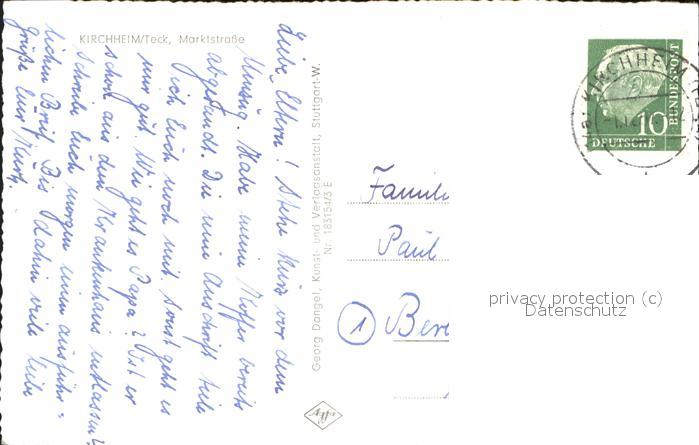 KIRCHHEIM/Teck, Marktstraße
Liebe Eltern! Stehe kurz vor dem
Umzug. Habe meine Koffer bereits
abgesandt. Die neue Anschrift teile
ich Euch noch mit. Sonst geht es
mir gut. Wie geht es Papa? Ist er
schon aus dem Krankenhaus entlassen?
Schreibe Euch morgen einen ausführ=
lichen Brief. Bis dahin viele liebe
Grüße Euer
Georg Dangel, Kunst- und Verlagsanstalt, Stuttgart-W.
Nr. 183154/3 E
Agfa
KIRCHHEIM
10
DEUTSCHE
BUNDESPOST
Famil
Paul
1
Ber
privacy protection (c)
Datenschutz